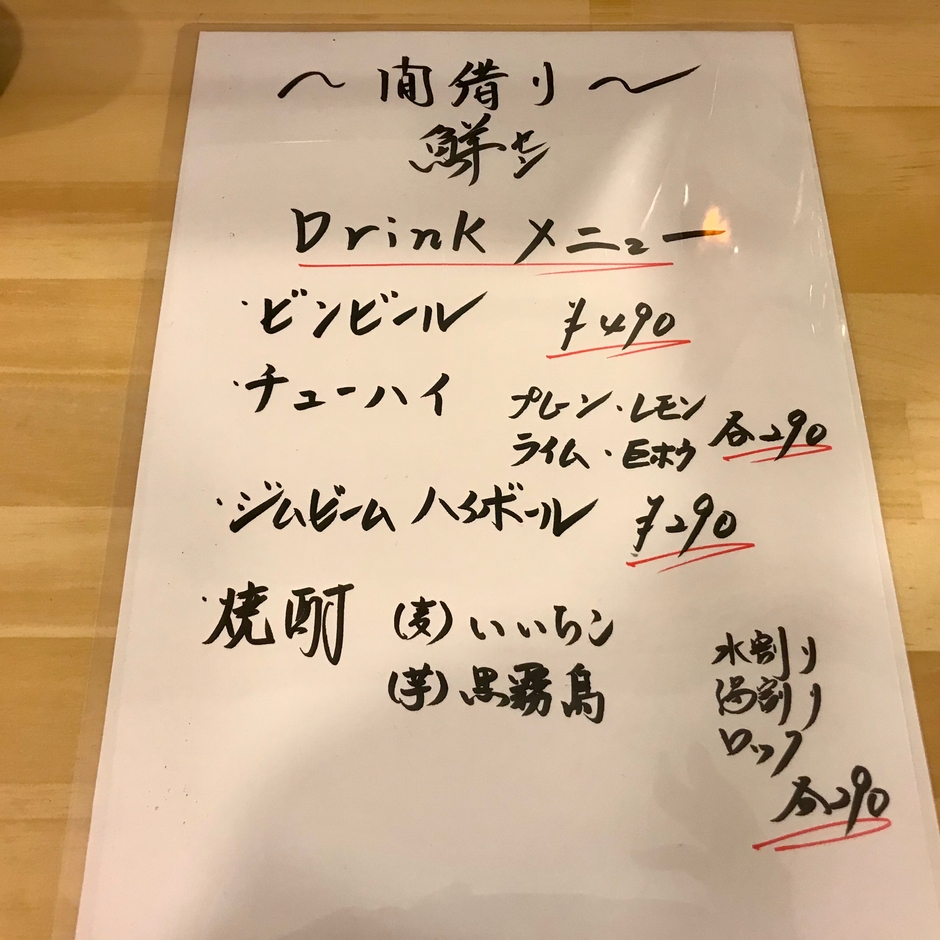 ～間借り～
鮮セン
Drink メニュー
・ビンビール ¥490
・チューハイ プレーン・レモン
ライム・巨ホウ 各290
・ジムビーム ハイボール ¥290
・焼酎 (麦)いいちこ
(芋)黒霧島
水割り
湯割り
ロック
各290